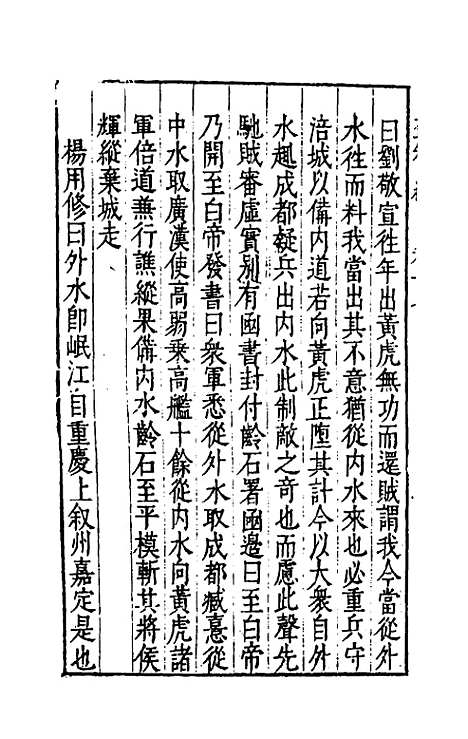 曰劉敬宣往年出黃虎無功而還賊謂我今當從外
水往而料我當出其不意猶從内水來也必重兵守
涪城以備内道若向黃虎正墮其計今以大衆自外
水趣成都疑兵出内水此制敵之奇也而慮此聲先
馳賊審虛實别有函書封付齡石署函邊曰至白帝
乃開至白帝發書曰衆軍悉從外水取成都臧憙從
中水取廣漢使高弱乗高艦十餘從内水向黃虎諸
軍倍道兼行譙縱果備内水齡石至平模斬其將侯
輝縱棄城走
楊用修曰外水卽岷江自重慶上叙州嘉定是也